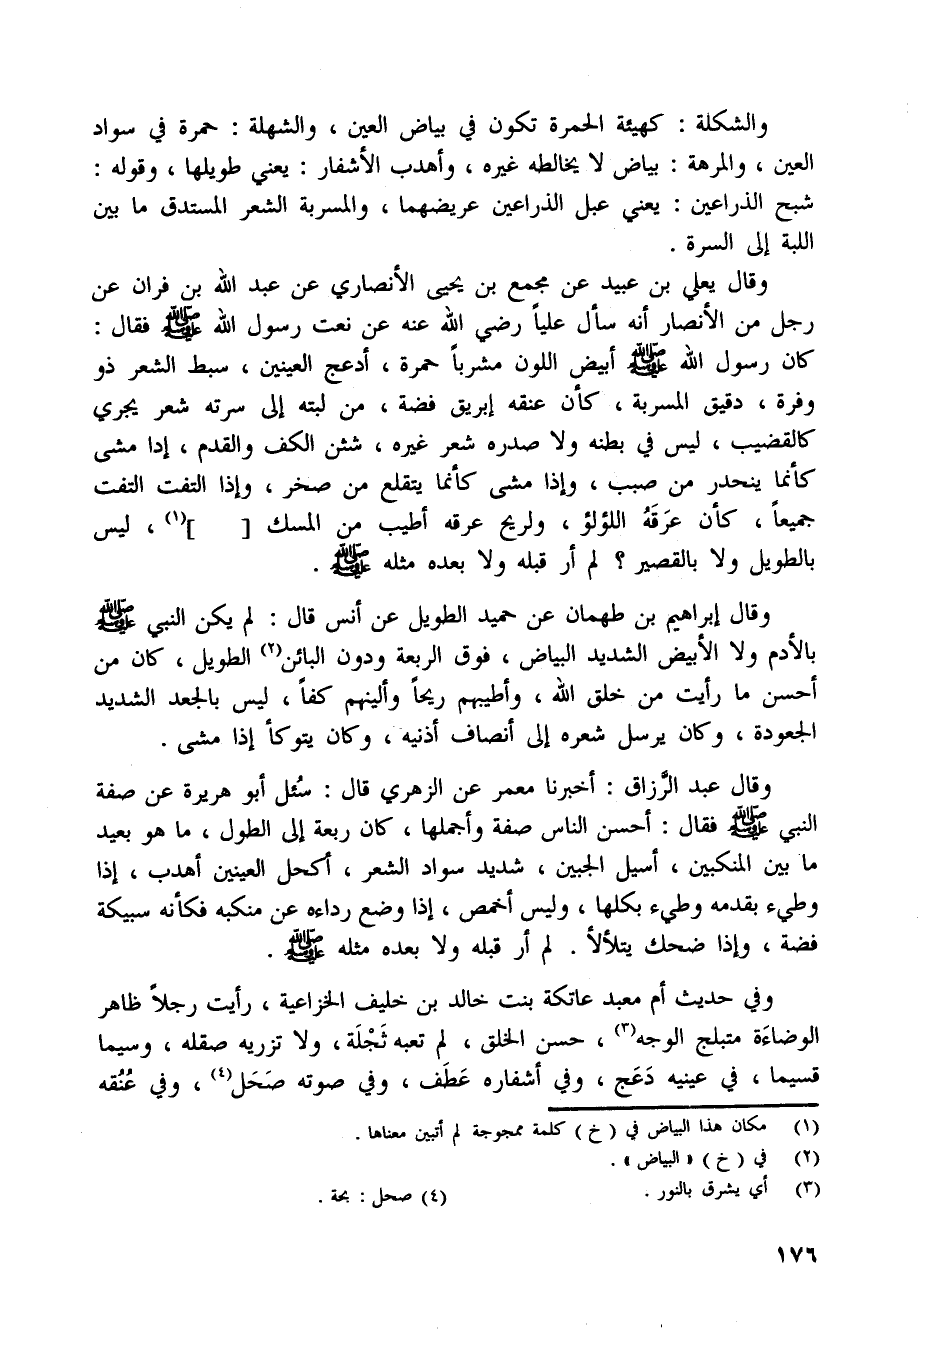 والشكلة : كهيئة الحمرة تكون في بياض العين ، والشهلة : حمرة في سواد
العين ، والمرهة : بياض لا يخالطه غيره ، وأهدب الأشفار : يعني طويلها ، وقوله :
شبح الذراعين : يعني عبل الذراعين عريضهما ، والمسربة الشعر المستدق ما بين
اللبة إلى السرة .
وقال يعلي بن عبيد عن مجمع بن يحيى الأنصاري عن عبد الله بن فران عن
رجل من الأنصار أنه سأل علياً رضي الله عنه عن نعت رسول الله ﷺ فقال :
كان رسول الله ﷺ أبيض اللون مشرباً حمرة ، أدعج العينين ، سبط الشعر ذو
وفرة ، دقيق المسربة ، كأن عنقه إبريق فضة ، من لبته إلى سرته شعر يجري
كالقضيب ، ليس في بطنه ولا صدره شعر غيره ، شثن الكف والقدم ، إدا مشى
كأنما ينحدر من صبب ، وإذا مشى كأنما يتقلع من صخر ، وإذا التفت التفت
جميعاً ، كأن عرَقَهُ اللؤلؤ ، ولريح عرقه أطيب من المسك [ ](١) ، ليس
بالطويل ولا بالقصير ؟ لم أر قبله ولا بعده مثله ﷺ .
وقال إبراهيم بن طهمان عن حميد الطويل عن أنس قال : لم يكن النبي ﷺ
بالأدم ولا الأبيض الشديد البياض ، فوق الربعة ودون البائن(٢) الطويل ، كان من
أحسن ما رأيت من خلق الله ، وأطيبهم ريحاً وألينهم كفاً ، ليس بالجعد الشديد
الجعودة ، وكان يرسل شعره إلى أنصاف أذنيه ، وكان يتوكأ إذا مشى .
وقال عبد الرَّزاق : أخبرنا معمر عن الزهري قال : سُئل أبو هريرة عن صفة
النبي ﷺ فقال : أحسن الناس صفة وأجملها ، كان ربعة إلى الطول ، ما هو بعيد
ما بين المنكبين ، أسيل الجبين ، شديد سواد الشعر ، أكحل العينين أهدب ، إذا
وطيء بقدمه وطيء بكلها ، وليس أخمص ، إذا وضع رداءه عن منكبه فكأنه سبيكة
فضة ، وإذا ضحك يتلألأ . لم أر قبله ولا بعده مثله ﷺ .
وفي حديث أم معبد عاتكة بنت خالد بن خليف الخزاعية ، رأيت رجلاً ظاهر
الوضاءَة متبلج الوجه(٣) ، حسن الخلق ، لم تعبه ثَجْلَة ، ولا تزريه صقله ، وسيما
قسيما ، في عينيه دَعَج ، وفي أشفاره عَطَف ، وفي صوته صَحَل(٤) ، وفي عُنُقه
(١) مكان هذا البياض في ( خ ) كلمة ممجوجة لم أتبين معناها .
(٢) في ( خ ) « البياض » .
(٣) أي يشرق بالنور . (٤) صحل : بحة .
١٧٦